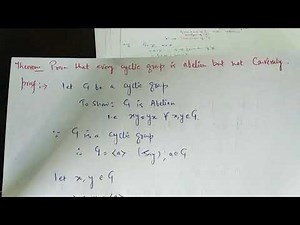 Theorem Prove that every cyclic group is abelian but not Conversly.
Proof:→ Let G be a cyclic group
To show: G is Abelian
i.e xy=yx ∀ x,y∈G.
∵ G is a cyclic group
∴ G=<a> (say), a∈G
Let x,y∈G